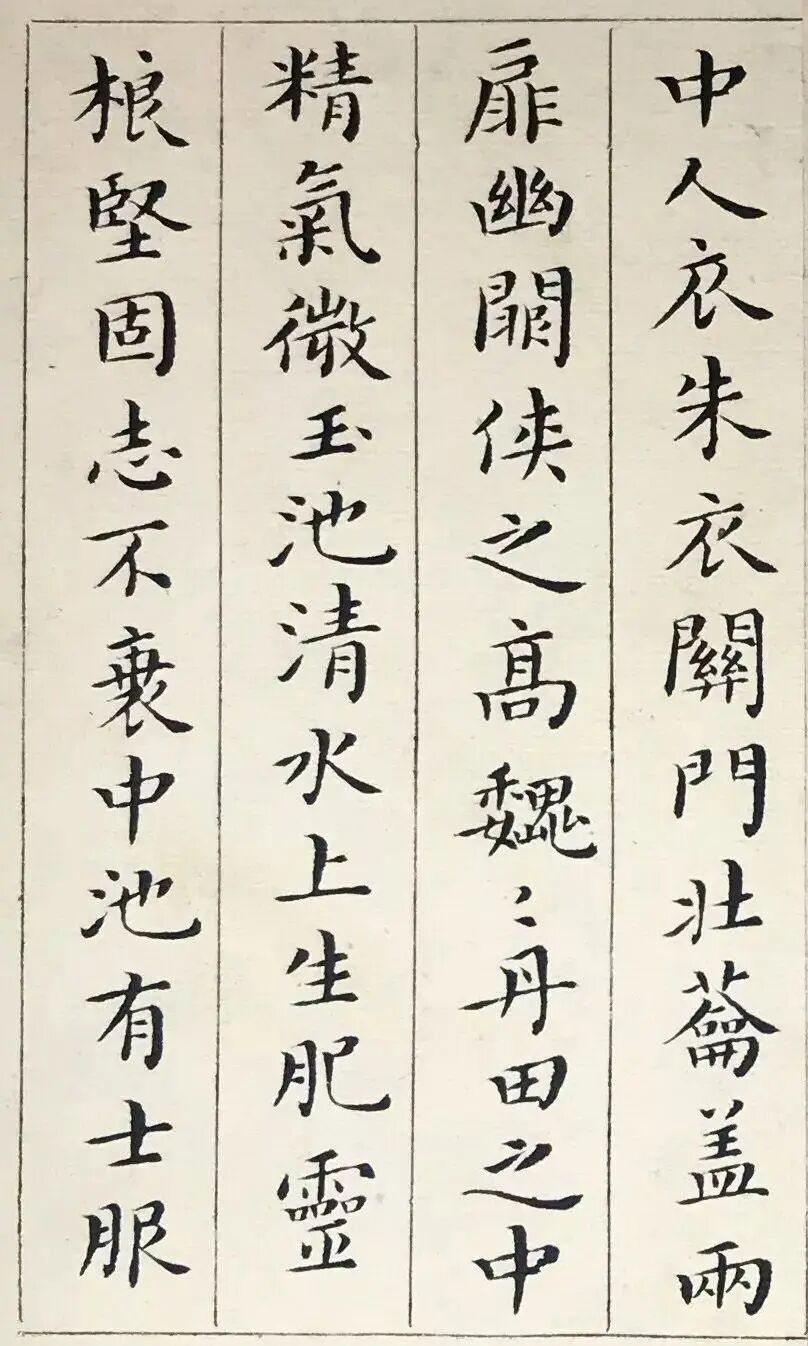 中人衣朱衣關門壯蘥盖兩
扉幽闗侠之髙魏〻丹田之中
精氣微玉池清水上生肥靈
根堅固志不衰中池有士服